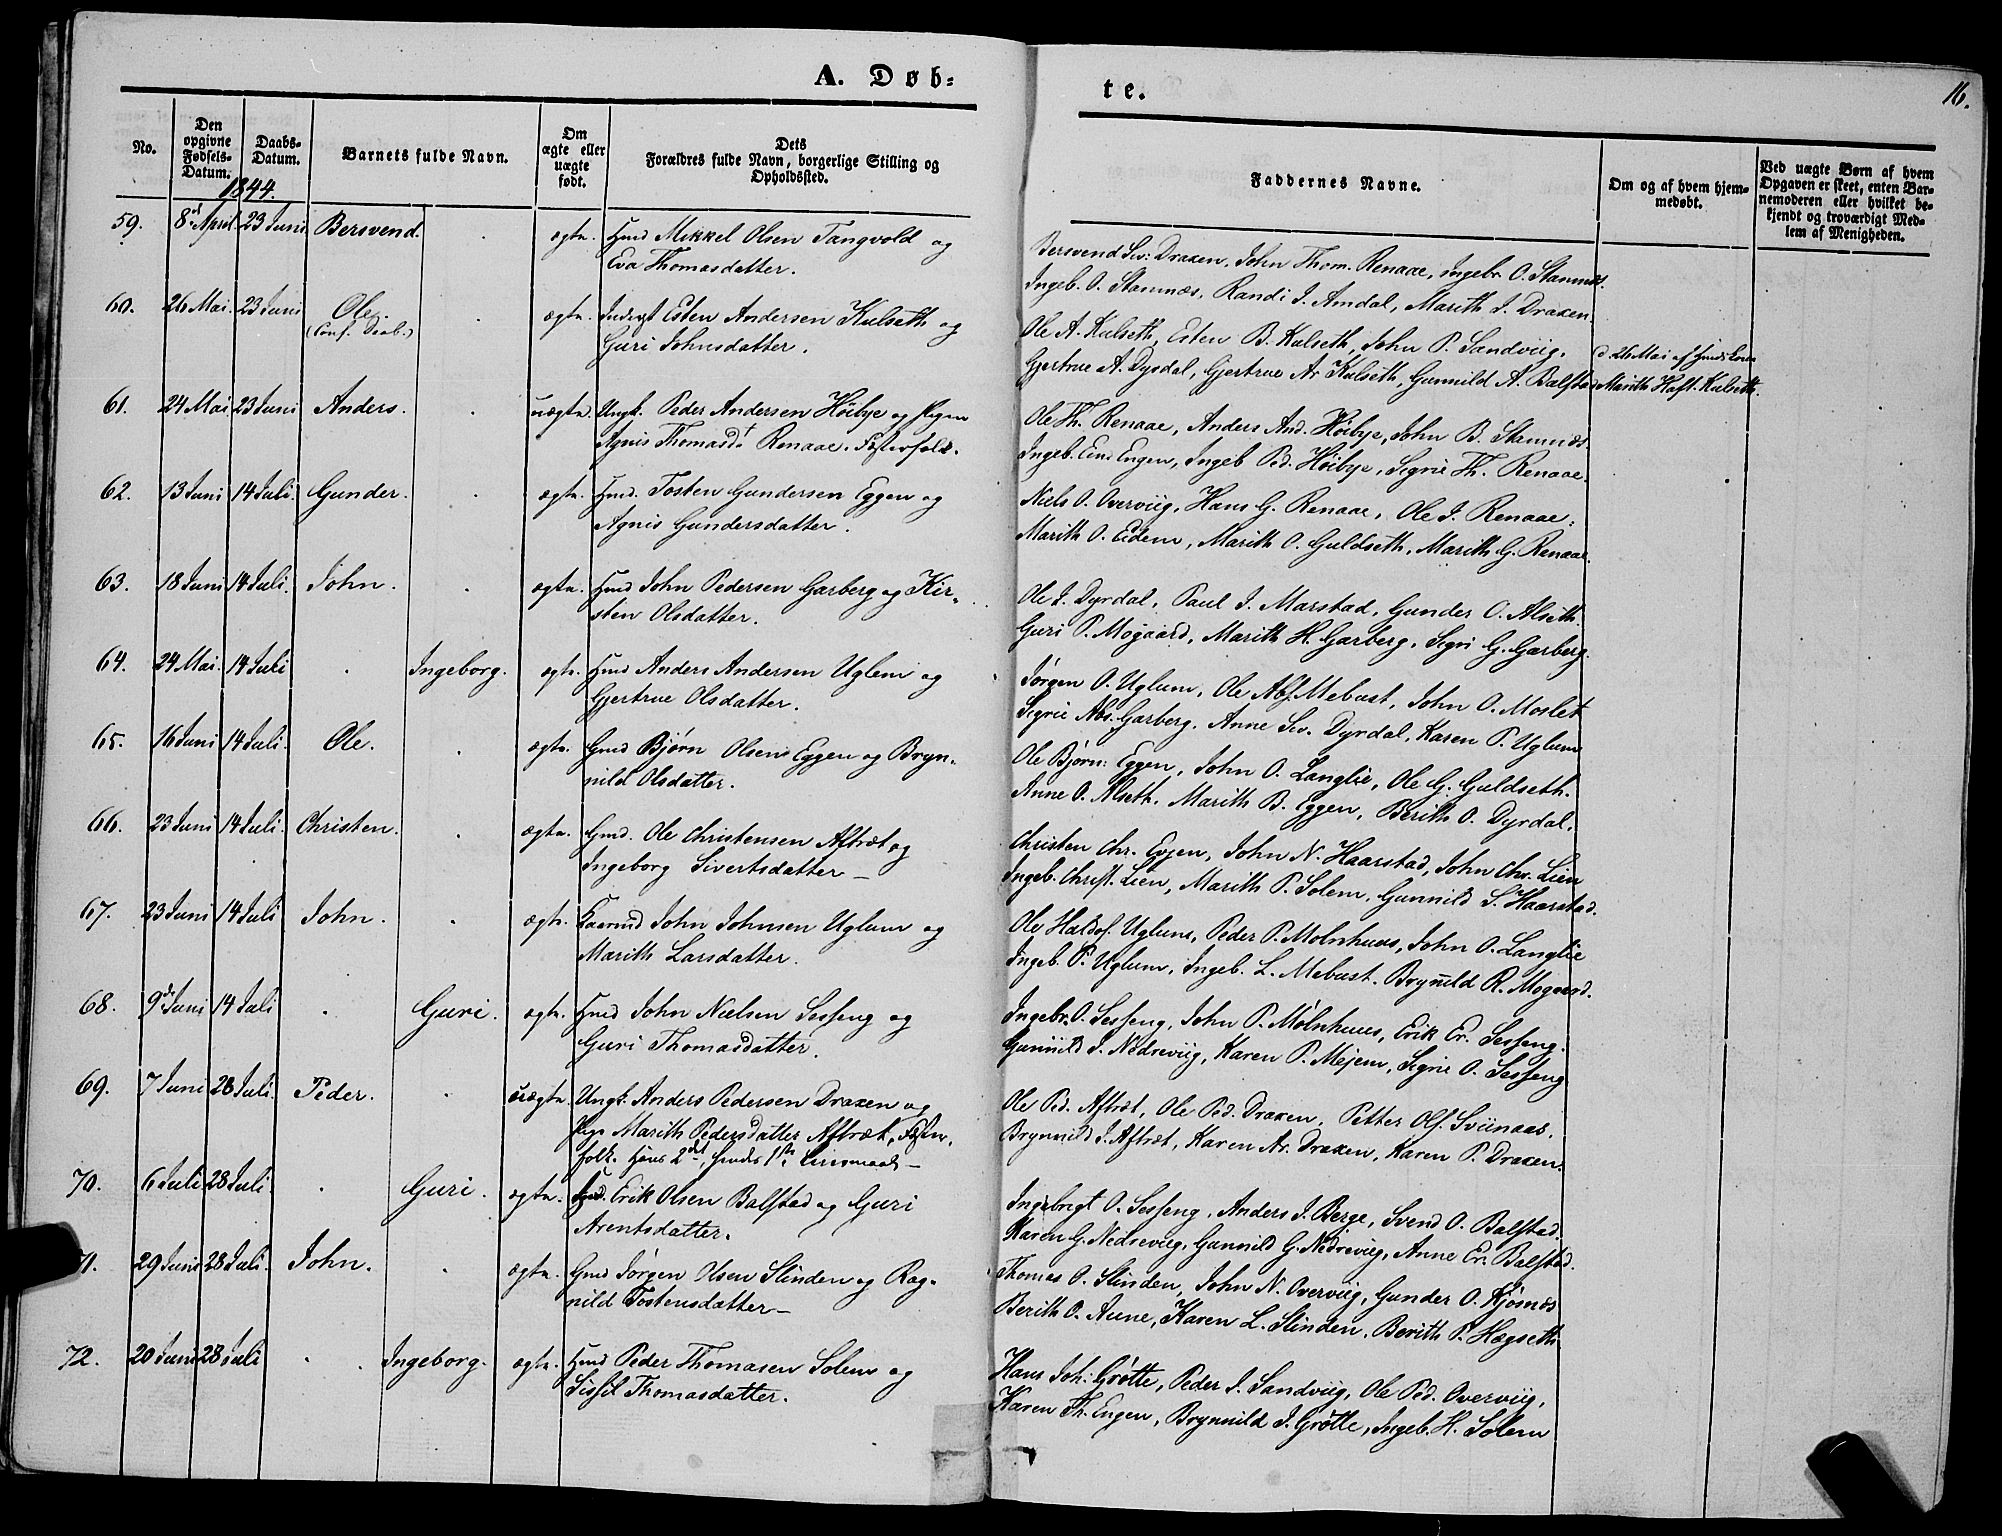 A. Døb-
te.
16.
No.
Den opgivne Fødsels-Datum.
Daabs-Datum.
Barnets fulde Navn.
Om ægte eller uægte født.
Dets Forældres fulde Navn, borgerlige Stilling og Opholdssted.
Faddernes Navne.
Om og af hvem hjem-medøbt.
Ved uægte Børn af hvem Opgaven er skeet, enten Bar-nemoderen eller hvilket be-kjendt og troværdigt Med-lem af Menigheden.
1844.
59. 8de April. 23 Juni Bersvend. ægte. Hmd Mikkel Olsen Tangvold og
Eva Thomasdatter.
Bersvend Siv: Draxen, John Thom. Renaae, Ingebr. O. Stamnæs.
Ingeb. O. Stamnæs, Randi J. Amdal, Marith J. Draxen.
60. 26 Mai. 23 Juni Ole. ægte. Esten Andersen Kulseth og
(Conf. Daab.) Guri Johnsdatter.
Ole A. Kulseth, Esten B. Kulseth, John P. Sandviig.
d. 26 Mai af
Gjertrue A. Dyrdal, Gjertrue Ar Kulseth, Gunnild A. Balstad
Marith Haft. Kulseth.
61. 24 Mai 23 Juni Anders. uægte. Ungk. Peder Andersen Høibye og Pigen
Agnis Thomasdt Renaae. Festerfolk.
Ole Th. Renaae, Anders And. Høibye, John B. Stamnæs
Ingeb. Eind Engen, Ingeb Ped. Høibye, Segrie Th. Renaae.
62. 13 Juni 14 Juli. Gunder. ægte. Hmd. Tosten Gundersen Eggen og
Agnis Gundersdatter.
Niels O. Overviig, Hans G. Renaae, Ole J. Renaae.
Marith O. Eidem, Marith O. Guldseth, Marith G. Renaae.
63. 18 Juni 14 Juli. John. ægte. Hmd John Pedersen Garberg og Kir-
sten Olsdatter.
Ole J. Dyrdal, Paul J. Marstad, Gunder O. Alseth.
Guri P. Mogaard, Marith H. Garberg, Segri G. Garberg.
64. 24 Mai. 14 Juli Ingeborg. ægte. Hmd Anders Andersen Uglem og
Gjertrue Olsdatter.
Jørgen O. Uglum, Ole Abs. Mebust, John O. Moslet
Segrie Abs. Garberg, Anne Siv. Dyrdal, Karen P. Uglum
65. 16 Juni 14 Juli. Ole. ægte. Gmd Bjørn Olsen Eggen og Bryn-
nild Olsdatter.
Ole Bjørn: Eggen, John O. Langlie, Ole G. Guldseth.
Anne O. Alseth. Marith B. Eggen, Berith O. Dyrdal.
66. 23 Juni 14 Juli. Christen. ægte. Gmd. Ole Christensen Aftræt og
Ingeborg Sivertsdatter –
Christen Chr. Evjen, John N. Haarstad, John Chr. Lien
Ingeb. Christ. Lien, Marith P. Solem, Gunnild S. Haarstad.
67. 23 Juni 14 Juli John. ægte. John Johnsen Uglum og
Marith Larsdatter.
Ole Haldos. Uglum, Peder P. Mølnhuus, John O. Langlie
Ingeb. P. Uglum, Ingeb. L. Mebust. Brynnild R. Mogaard.
68. 9de Juni 14 Juli Guri. ægte. Hmd John Nielsen Sesseng og
Guri Thomasdatter.
Ingebr. O. Sesseng, John P. Mølnhuus, Erik Er. Sesseng.
Gunnild J. Nedreviig, Karen P. Mejem, Segrie O. Sesseng
69. 7 Juni 28 Juli. Peder. uægte. Ungk. Anders Pedersen Draxen og
Pige Marith Pedersdatter Aftræt, Fester-
folk. Hans 2det, hendes 1ste Leiermaal –
Ole Ped. Aftræt, Ole Ped. Draxen, Petter Ols. Sviinaas.
Brynnild J. Aftræt, Karen Ar. Draxen, Karen P. Draxen.
70. 6 Juli 28 Juli. Guri. ægte. Erik Olsen Balstad og Guri
Arentsdatter.
Ingebrigt O. Sesseng, Anders J. Berge, Svend O. Balstad.
Karen G. Nedreviig, Gunnild G. Nedreviig, Anne Er. Balstad.
71. 29 Juni 28 Juli. John. ægte. Gmd Jørgen Olsen Slinden og Rag-
nild Tostensdatter –
Thomas O. Slinden, John N. Overviig, Gunder O. Kjøsnæs
Berith O. Aune, Karen L. Slinden, Berith P. Hegseth.
72. 20 Juni 28 Juli Ingeborg. ægte. Hmd Peder Thomasen Solem og
Sissil Thomasdatter.
Hans Joh: Grøtte, Peder J. Sandviig, Ole Ped. Overviig,
Karen Th. Engen, Brynnild J. Grøtte, Ingeb. H. Solem